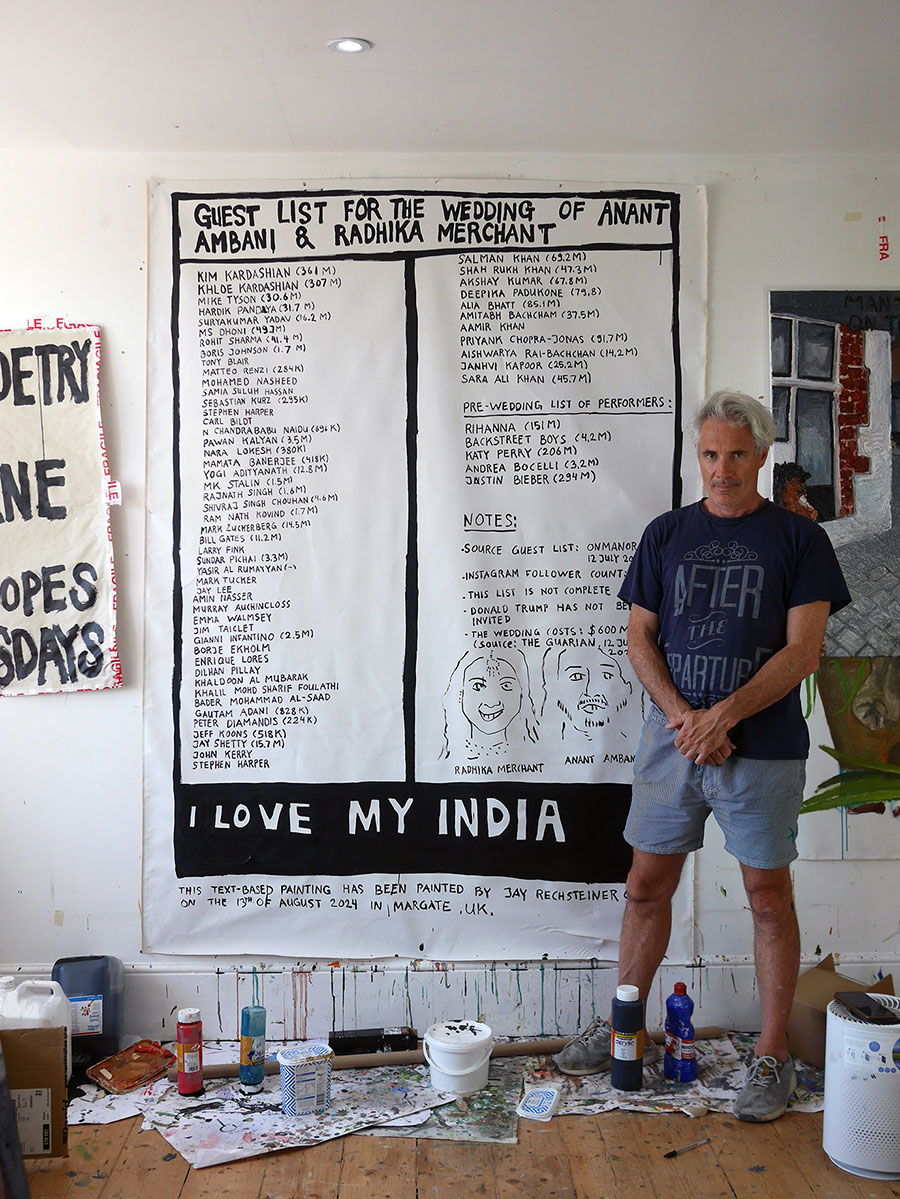 GUEST LIST FOR THE WEDDING OF ANANT
AMBANI & RADHIKA MERCHANT
KIM KARDASHIAN (361 M)
KHLOE KARDASHIAN (307 M)
MIKE TYSON (30.6 M)
HARDIK PANDAYA (31.7 M)
SURYAKUMAR YADAV (16.2 M)
MS DHONI (49.3M)
ROHIT SHARMA (41.4 M)
BORIS JOHNSON (1.7 M)
TONY BLAIR
MATTEO RENZI (284K)
MOHAMED NASHEED
SAMIA SULUH HASSAN
SEBASTIAN KURZ (295K)
STEPHEN HARPER
CARL BILDT
N CHANDRABABU NAIDU (696 K)
PAWAN KALYAN (3.5 M)
NARA LOKESH (380K)
MAMATA BANERJEE (418K)
YOGI ADITYANATH (12.8 M)
MK STALIN (1.5M)
RAJNATH SINGH (1.6M)
SHIVRAJ SINGH CHOUHAN (4.6 M)
RAM NATH KOVIND (1.7 M)
MARK ZUCKERBERG (14.5M)
BILL GATES (11.2M)
LARRY FINK
SUNDAR PICHAI (3.3M)
YASIR AL RUMAYYAN (-)
MARK TUCKER
JAY LEE
AMIN NASSER
MURRAY AUCHINCLOSS
EMMA WALMSEY
JIM TAICLET
GIANNI INFANTINO (2.5M)
BORJE EKHOLM
ENRIQUE LORES
DILHAN PILLAY
KHALDOON AL MUBARAK
KHALIL MOHD SHARIF FOULATHI
BADER MOHAMMAD AL-SAAD
GAUTAM ADANI (828 K)
PETER DIAMANDIS (224K)
JEFF KOONS (518K)
JAY SHETTY (15.7M)
JOHN KERRY
STEPHEN HARPER
SALMAN KHAN (69.2M)
SHAH RUKH KHAN (47.3M)
AKSHAY KUMAR (67.8M)
DEEPIKA PADUKONE (79.8)
ALIA BHATT (85.1M)
AMITABH BACHCHAM (37.5M)
AAMIR KHAN
PRIYANK CHOPRA-JONAS (91.7M)
AISHWARYA RAI-BACHCHAN (14.2M)
JANHVI KAPOOR (25.2M)
SARA ALI KHAN (45.7M)
PRE-WEDDING LIST OF PERFORMERS:
RIHANNA (151 M)
BACKSTREET BOYS (4.2M)
KATY PERRY (206M)
ANDREA BOCELLI (3.2M)
JUSTIN BIEBER (294M)
NOTES:
•SOURCE GUEST LIST: ONMANOR
12 JULY 20
•INSTAGRAM FOLLOWER COUNT:
•THIS LIST IS NOT COMPLETE
•DONALD TRUMP HAS NOT BE
INVITED
•THE WEDDING COSTS: $600 M
(Source: THE GUARIAN, 12 JU
202
RADHIKA MERCHANT
ANANT AMBAN
I LOVE MY INDIA
THIS TEXT-BASED PAINTING HAS BEEN PAINTED BY JAY RECHSTEINER
ON THE 13TH OF AUGUST 2024 IN MARGATE, UK.
OETRY
NE
OPES
SDAYS
FRAGILE
FRA
MAN
ON T
AFTER
THE
EPARTURE